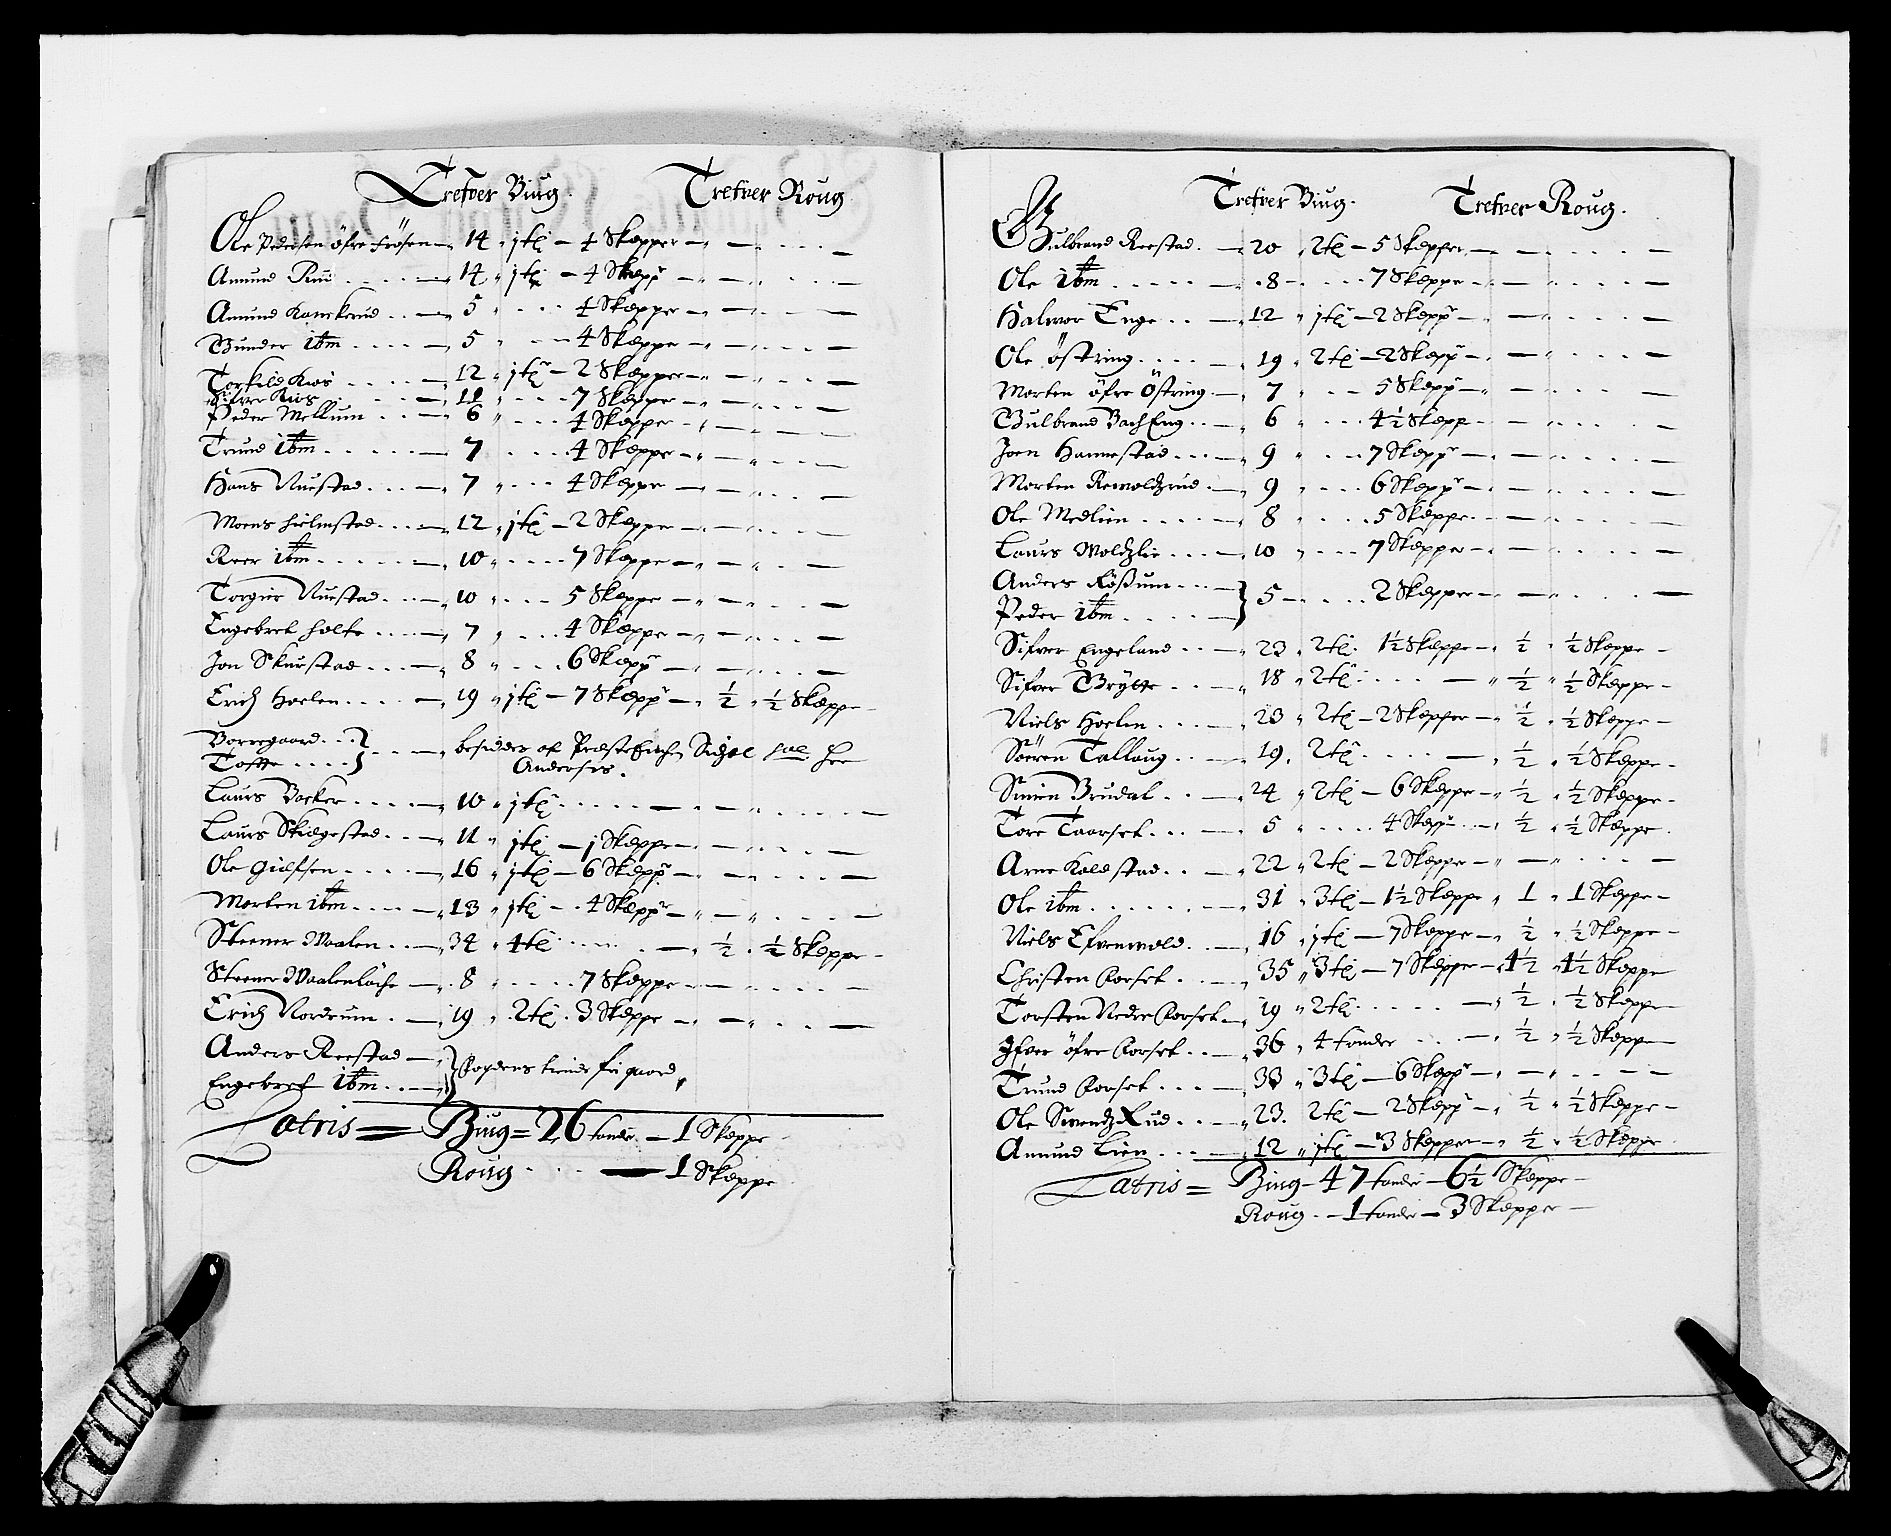 Trefver Biug. Trefver Roug
Ole Pedersen öfre Frösen — 14 " 1 tl — 4 Skepper — " — " . . . —
Amund Rud . . . . — 14 " 1 tl — 4 Skepp — " — " . . . —
Amund . . — 5 " . . . 4 Skeppe — " — " . . . —
Gunder ibm . . . . — 5 " . . . 4 Skeppe — " — " . . . —
Torkild . . . . — 12 " 1 tl — 2 Skepper — " — " . . . —
Sifver . . . . — 11 " . . . . 7 Skeppe — " — " . . . —
Peder Mellum . . — 6 " . . . 4 Skeppe — " — . . . —
Trund ibm . . . . . — 7 . . . . 4 Skeppe — " — " . . . —
Hans Ruestad . . . — 7 " . . . 4 Skeppe — " — " . . . —
Moens Hielmstad . . . — 12 " 1 tl — 2 Skeppe — " — " . . . —
Reer ibm . . . . . . — 10 " . . . . 7 Skeppe — " — " . . . —
Torgier Ruestad . . — 10 " . . . 5 Skeppe — " — " . . . —
Engebret Holte . . . — 7 " . . . 4 Skeppe — " — " . . . —
Jon Skurstad . . . — 8 " . . . . 6 Skepp — " — " . . . —
Erich Hoelen . . . . — 19 " 1 tl — 7 Skepp — " ½ " ½ Skeppe —
Borregaard . . . } . . . — besiddes af Sal Her
Toffte . . . . } Andersis.
Laurs Backer . . . . — 10 " 1 tl . . . . . — — " — " . . . —
Laurs Skiegestad . . — 11 " 1 tl — 1 Skeppe — " — " . . . —
Ole Gielfsen . . . . — 16 " 1 tl — 6 Skepp — " — " . . . —
Morten ibm . . . . — 13 " 1 tl — . 4 Skepp — " — " . . . —
Steener Maalen . . — 34 " 4 tl . . . . . — " ½ " ½ Skeppe —
Steener — 8 " . . . . 7 Skeppe — " — . . . —
Erich Nordrum . . — 19 " 2 tl . 3 Skeppe — " — " . . . —
Anders Reestad — " }
Engebret ibm . . — " } tiende fri gaard
Latris = Biug = 26 tønder — 1 Skeppe
Roug . . . — 1 Skeppe
Trefver Biug . Trefver Roug .
Gulbrand Reestad . — 20 " 2 tl — 5 Skepper — " — . . . —
Ole ibm . . . . . — " 8 — . . . . 7 Skeppe — " — " . . . —
Halvor Enge . . — 12 " 1 tl — 2 Skepp — " — " . . . —
Ole Östring . . . . — 19 " 2 tl — 2 Skepp — " — " . . . —
Morten öfre Östring . — 7 " . . . 5 Skepp — " — " . . . —
Gulbrand Bach Eng . . — 6 " . . . 4½ Skepp — " — " . . . —
Joen Hannestad . . . — 9 " . . . 7 Skepp — " — " . . . —
Morten . — 9 " . . . . 6 Skepp — " — " . . . —
Ole Medlien . . . . — 8 " . . . . 5 Skeppe — " — " . . . —
Laurs Woldzlie . . . — 10 " . . . 7 Skepper — " — " . . . —
Anders Rößum . . . — } 5 — . . . . 2 Skepper — " — " . . . —
Peder ibm . . . . — }
Sifver Engeland . . — 23 " 2 tl . 1½ Skeppe — " ½ " ½ Skeppe —
Sifver Brytte . . — 18 " 2 tl . . . . — " ½ " ½ Skeppe —
Niels Hoelen . . . — 23 " 2 tl — 2 Skepper — " ½ " ½ Skeppe —
Sören Tallaug . . . — 19 . 2 tl . . . . — " ½ " ½ Skeppe —
Simen Brudal . . — 24 " 2 tl — 6 Skeppe — " ½ " ½ Skeppe —
Tore Taarset . . . — 5 " . . . . 4 Skepp . — " ½ " ½ Skeppe .
Arne Kolestad . . — 22 " 2 tl — 2 Skeppe — " — " . . . —
Ole ibm . . . . . . — 31 " 3 tl — 1½ Skeppe " 1 " 1 Skeppe —
Niels Efvenvold . . — 16 " 1 tl — 7 Skeppe — " ½ " ½ Skeppe —
Christen Korset . . . — 35 " 3 tl — 7 Skeppe — " 1½ " 1½ Skeppe
Torsten Nedre Korset — 19 " 2 tl . . . . — " ½ " ½ Skeppe
Ifver öfre Korset . . — 36 " 4 tønder . . . — " ½ " ½ Skeppe —
Trund Korset . . . — 33 " 3 tl — 6 Skepp — " — " . . . —
Ole Svendz Rud . . — 23 . 2 tl — 2 Skepp — " ½ " ½ Skeppe —
Amund Lien . . . — 12 " 1 tl — 3 Skepper — " ½ " ½ Skeppe
Latris = Biug — 47 tønde — 6½ Skeppe —
Roug . — 1 tønde — 3 Skepper —